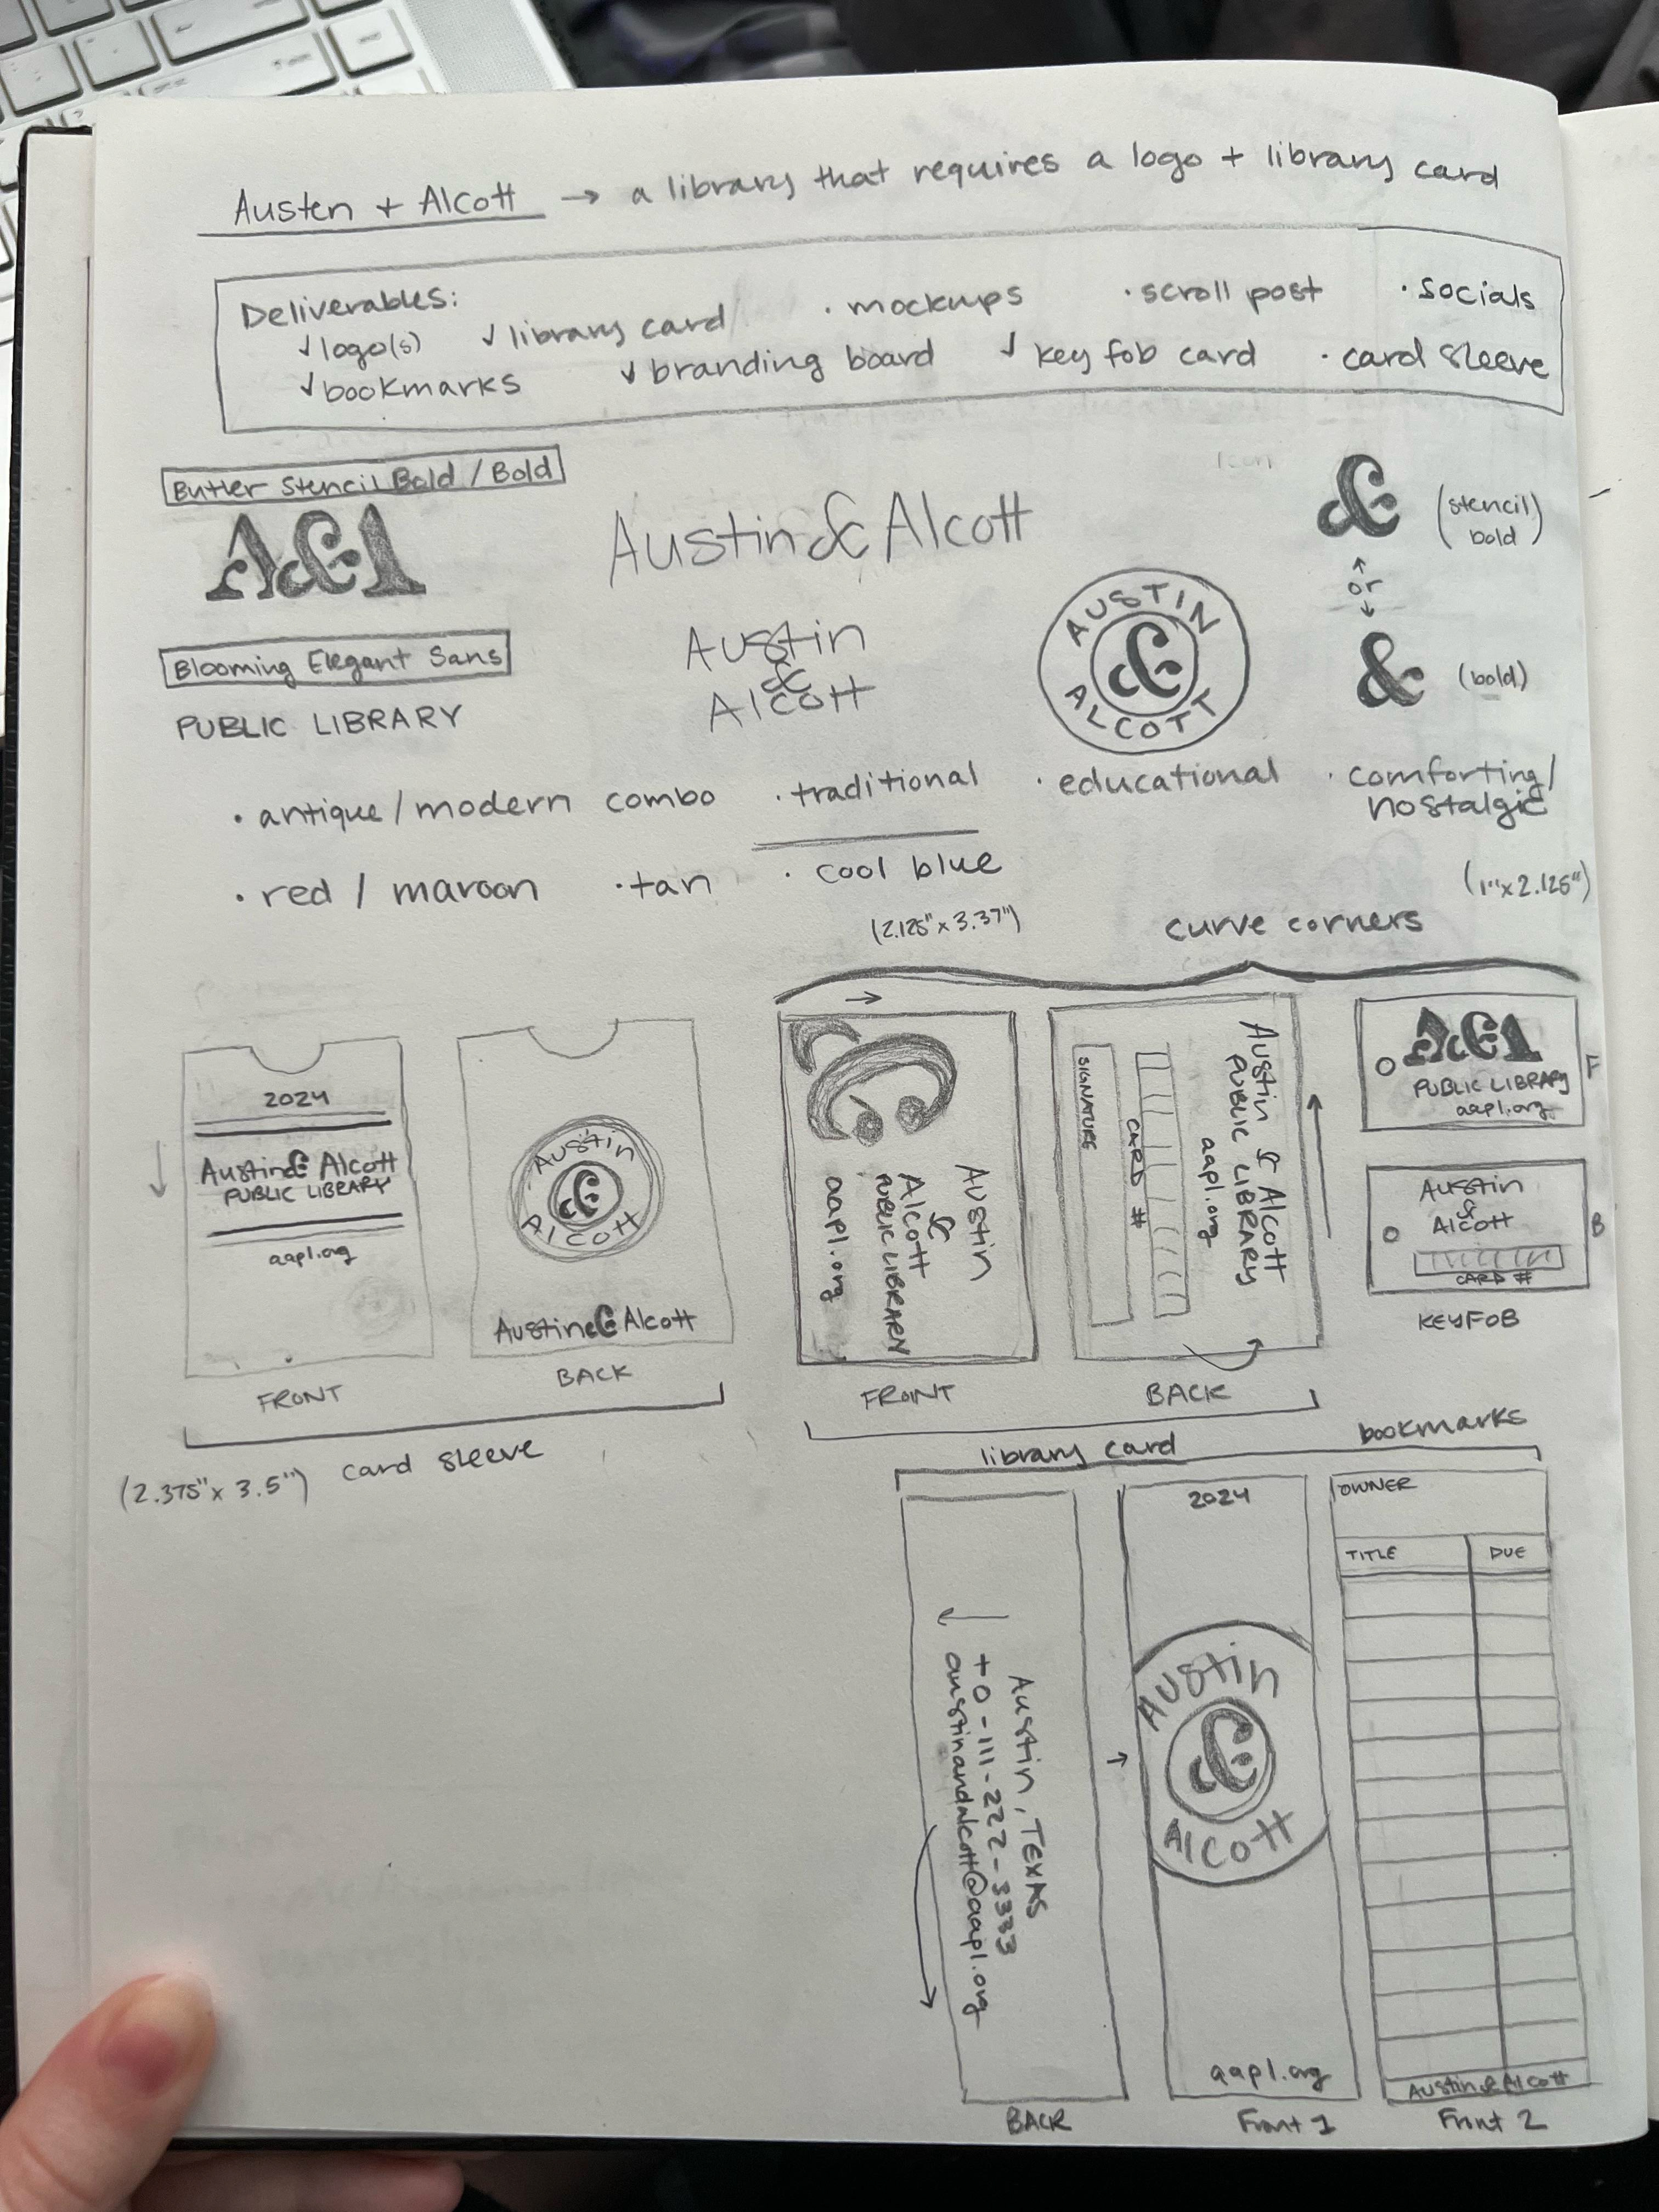 Austen + Alcott → a library that requires a logo + library card
Deliverables:
✓ logo(s) ✓ library card · mockups · scroll post · socials
✓ bookmarks ✓ branding board ✓ key fob card · card sleeve
Butler Stencil Bold / Bold
A&A
Austin & Alcott
& (stencil bold)
↑
or
↓
& (bold)
Blooming Elegant Sans
PUBLIC LIBRARY
Austin
&
Alcott
AUSTIN
&
ALCOTT
· antique / modern combo · traditional · educational · comforting / nostalgic
· red / maroon · tan · cool blue
(2.125" x 3.37")
curve corners
(1" x 2.125")
2024
Austin & Alcott
PUBLIC LIBRARY
aapl.org
FRONT
Austin
&
Alcott
Austin & Alcott
BACK
card sleeve
(2.375" x 3.5")
&
Austin
&
Alcott
PUBLIC LIBRARY
aapl.org
FRONT
Austin & Alcott
PUBLIC LIBRARY
aapl.org
CARD #
SIGNATURE
BACK
library card
A&A
PUBLIC LIBRARY
aapl.org
F
Austin
&
Alcott
CARD #
B
KEYFOB
bookmarks
Austin, TEXAS
+0-111-222-3333
austinandalcott@aapl.org
BACK
2024
Austin
&
Alcott
aapl.org
Front 1
OWNER
TITLE DUE
Austin & Alcott
Front 2